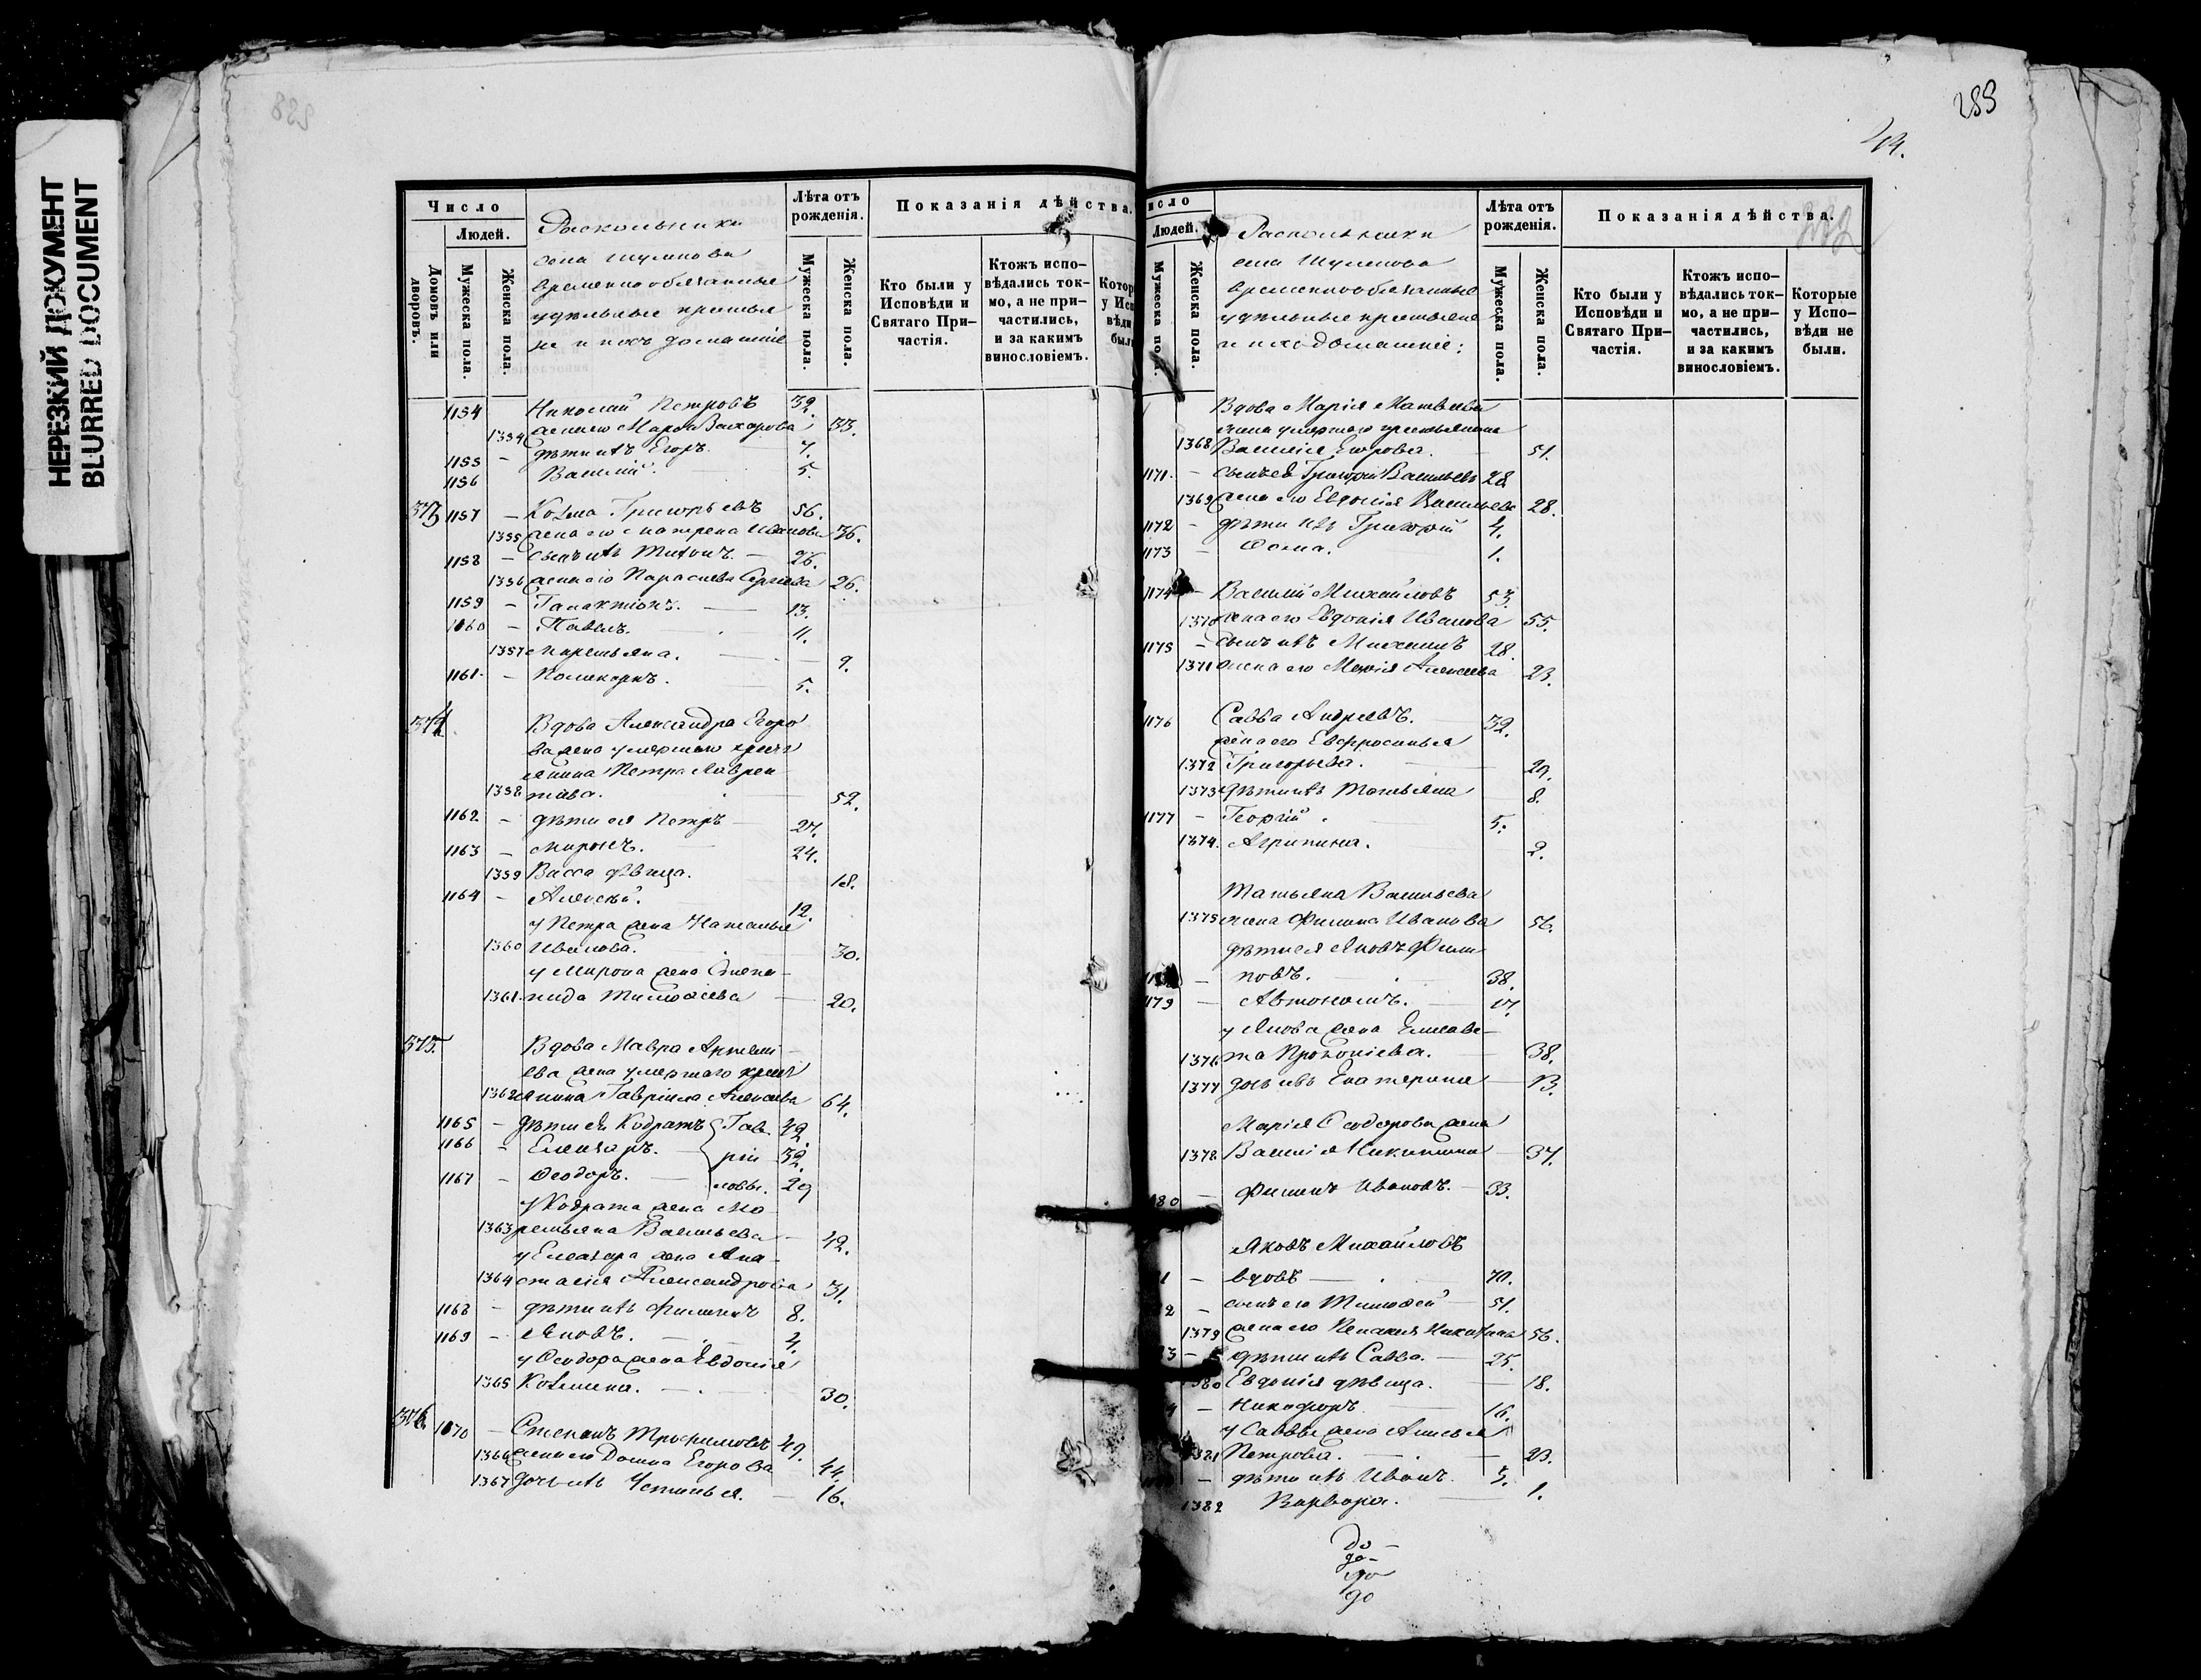 НЕРЕЗКИЙ ДОКУМЕНТ
BLURRED DOCUMENT
Число
Людей.
Домовъ или дворовъ.
Мужеска пола.
Женска пола.
Раскольники
села Шумкова
временнообязанные
удѣльные крестья
не и ихъ домашніе
Лѣта отъ рожденія.
Мужеска пола.
Женска пола.
Показанія дѣйства.
Кто были у Исповѣди и Святаго При-частія.
Ктожъ испо-вѣдались ток-мо, а не при-частились, и за какимъ винословіемъ.
1154 Николай Петровъ 32.
1354 жена его Марѳа Захарова 33.
1155 – дѣти ихъ Егоръ. 7.
1156 Василій. 5.
373 1157 – Козма Григорьевъ 56.
1355 жена его Матрена Иванова 36.
1158 – сынъ ихъ Титъ 26.
1356 жена его Параскева Сергіева 26.
1159 – Галактіонъ. 13.
1160 – Павелъ. 11.
1357 Маремьяна. 9.
1161 – Поликарпъ. 5.
374 Вдова Александра Егоро
ва жена умершаго крест
янина Петра Лаврен
1358 тіева. 52.
1162 – дѣти ея Петръ 27.
1163 – Миронъ. 24.
1359 Васса дѣвица. 18.
1164 – Алексѣй. 12.
у Петра жена Наталья
1360 Иванова. 30.
у Мирона жена Степа-
1361 нида Тимоѳеева 20.
375. Вдова Мавра Артеми-
ева жена умершаго крест
1362 янина Гавріила Алексѣева 64.
1165 – дѣти ея Кодратъ Гав- 42.
1166 – Елеазаръ. ріи- 32.
1167 – Ѳеодоръ. ловы. 29
у Кодрата жена Ма
1363 ремьяна Васильева 42.
у Елеазара жена Ана-
1364 стасія Александрова 31.
1168 – дѣти ихъ Филиппъ 8.
1169 – Яковъ. 4.
у Ѳеодора жена Евдокія
1365 Козмина. 30.
376. 1170 – Степанъ Трофимовъ 49.
1366 жена его Домна Егорова 44.
1367 дочь ихъ Устинья. 16.
289
332
исло
Людей.
Мужеска пола.
Женска пола.
Раскольники
села Шумкова
временнообязанные
удѣльные крестьяне
и ихъ домашніе:
Лѣта отъ рожденія.
Мужеска пола.
Женска пола.
Показанія дѣйства.
Кто были у Исповѣди и Святаго При-частія.
Ктожъ испо-вѣдались ток-мо, а не при-частились, и за какимъ винословіемъ.
Которые у Испо-вѣди не были.
Вдова Марія Матвѣева
жена умершаго крестьянина
1368 Василія Егорова. 51.
1171 – сынъ ея Григорій Васильевъ 28
1369 жена его Евдокія Васильева 28.
1172 – дѣти ихъ Григорій 4.
1173 – Ѳома. 1.
1174 – Василій Михайловъ 53.
1370 жена его Евдокія Иванова 55.
1175 – сынъ ихъ Михаилъ 28.
1371 жена его Марія Алексѣева 23.
1176 Савва Андреевъ. 32.
жена его Евфросинья
1372 Григорьева. 29.
1373 дѣти ихъ Татьяна 8.
1177 – Георгій. 5.
1374. Агрипина. 2.
Татьяна Васильева
1375 жена Филипа Иванова 56.
дѣти ея Яковъ Филип
– повъ. 38.
1179 – Автономъ. 17.
у Якова жена Елисаве-
1376 та Прокопіева. 38.
1377 дочь ихъ Екатерина 13.
Марія Ѳеодорова жена
1378 Василія Никитина 37.
80 – Филипъ Ивановъ. 33.
Яковъ Михайловъ
1 – вдовъ 70.
2 – сынъ его Тимоѳей 51.
1379 жена его Пелагея Никитина 56.
3 – дѣти ихъ Савва. 25.
1380 Евдокія дѣвица. 18.
4 – Никифоръ 16.
у Саввы жена Анисья
1381 Петрова. 23.
– дѣти ихъ Иванъ. 3.
1382 Варвара. 1.
до-
до-
до
до